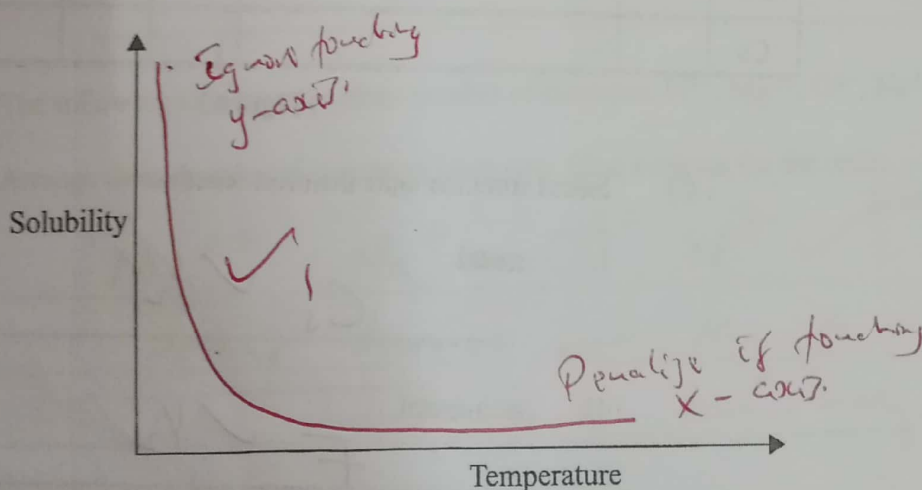 Ignore touching
y-axis.
Solubility
1
Penalize if touching
x-axis.
Temperature